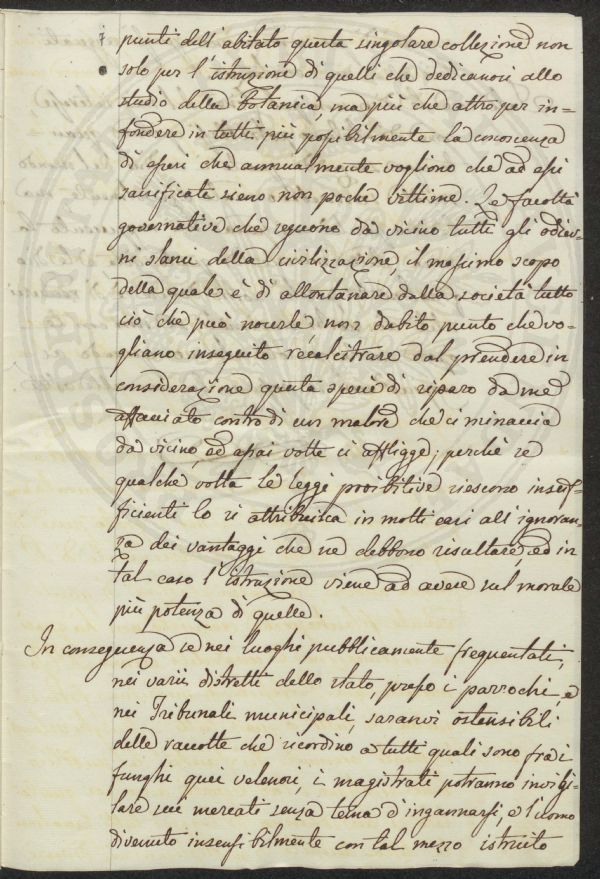 7
punti dell'abitato questa singolare collezione non
solo per l'istruzione di quelli che dedicansi allo
studio della botanica, ma più che altro per in=
fondere in tutti più possibilmente la conoscenza
di esseri che annualmente vogliono che ad essi
sacrificate sieno non poche vittime. Le facoltà
governative che seguono da vicino tutti gli odier=
ni slanci della civilizzazione, il massimo scopo
della quale è di allontanare dalla società tutto
ciò che può nocerle, non dubito punto che vo=
gliano inseguito recalcitrare dal prendere in
considerazione questa specie di riparo da me
affacciato contro di un malore che ci minaccia
da vicino, ed assai volte ci affligge; perchè se
qualche volta le leggi proibitive riescono insuf=
ficienti lo si attribuisca in molti casi all'ignoran=
za dei vantaggi che ne debbono risultare, ed in
tal caso l'istruzione viene ad avere sul morale
più potenza di quelle.
In conseguenza se nei luoghi pubblicamente frequentati,
nei varii distretti dello stato, presso i parrochi, e
nei Tribunali municipali, saranvi ostensibili
delle raccolte che ricordino a tutti quali sono fra i
funghi quei velenosi, i magistrati potranno invigi=
lare sui mercati senza tema d'ingannarsi, e l'uomo
divenuto insensibilmente con tal mezzo istruito